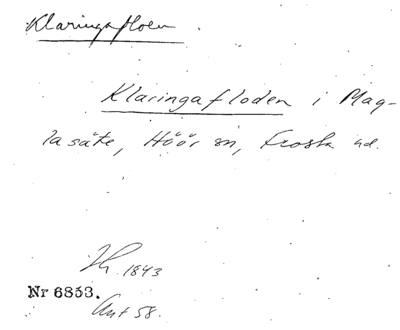 Klaringafloen.
Klaringafloden i Mag-
lasäte, Höör sn, Frosta hd.
1843
Nr 6853.
Ant 58.